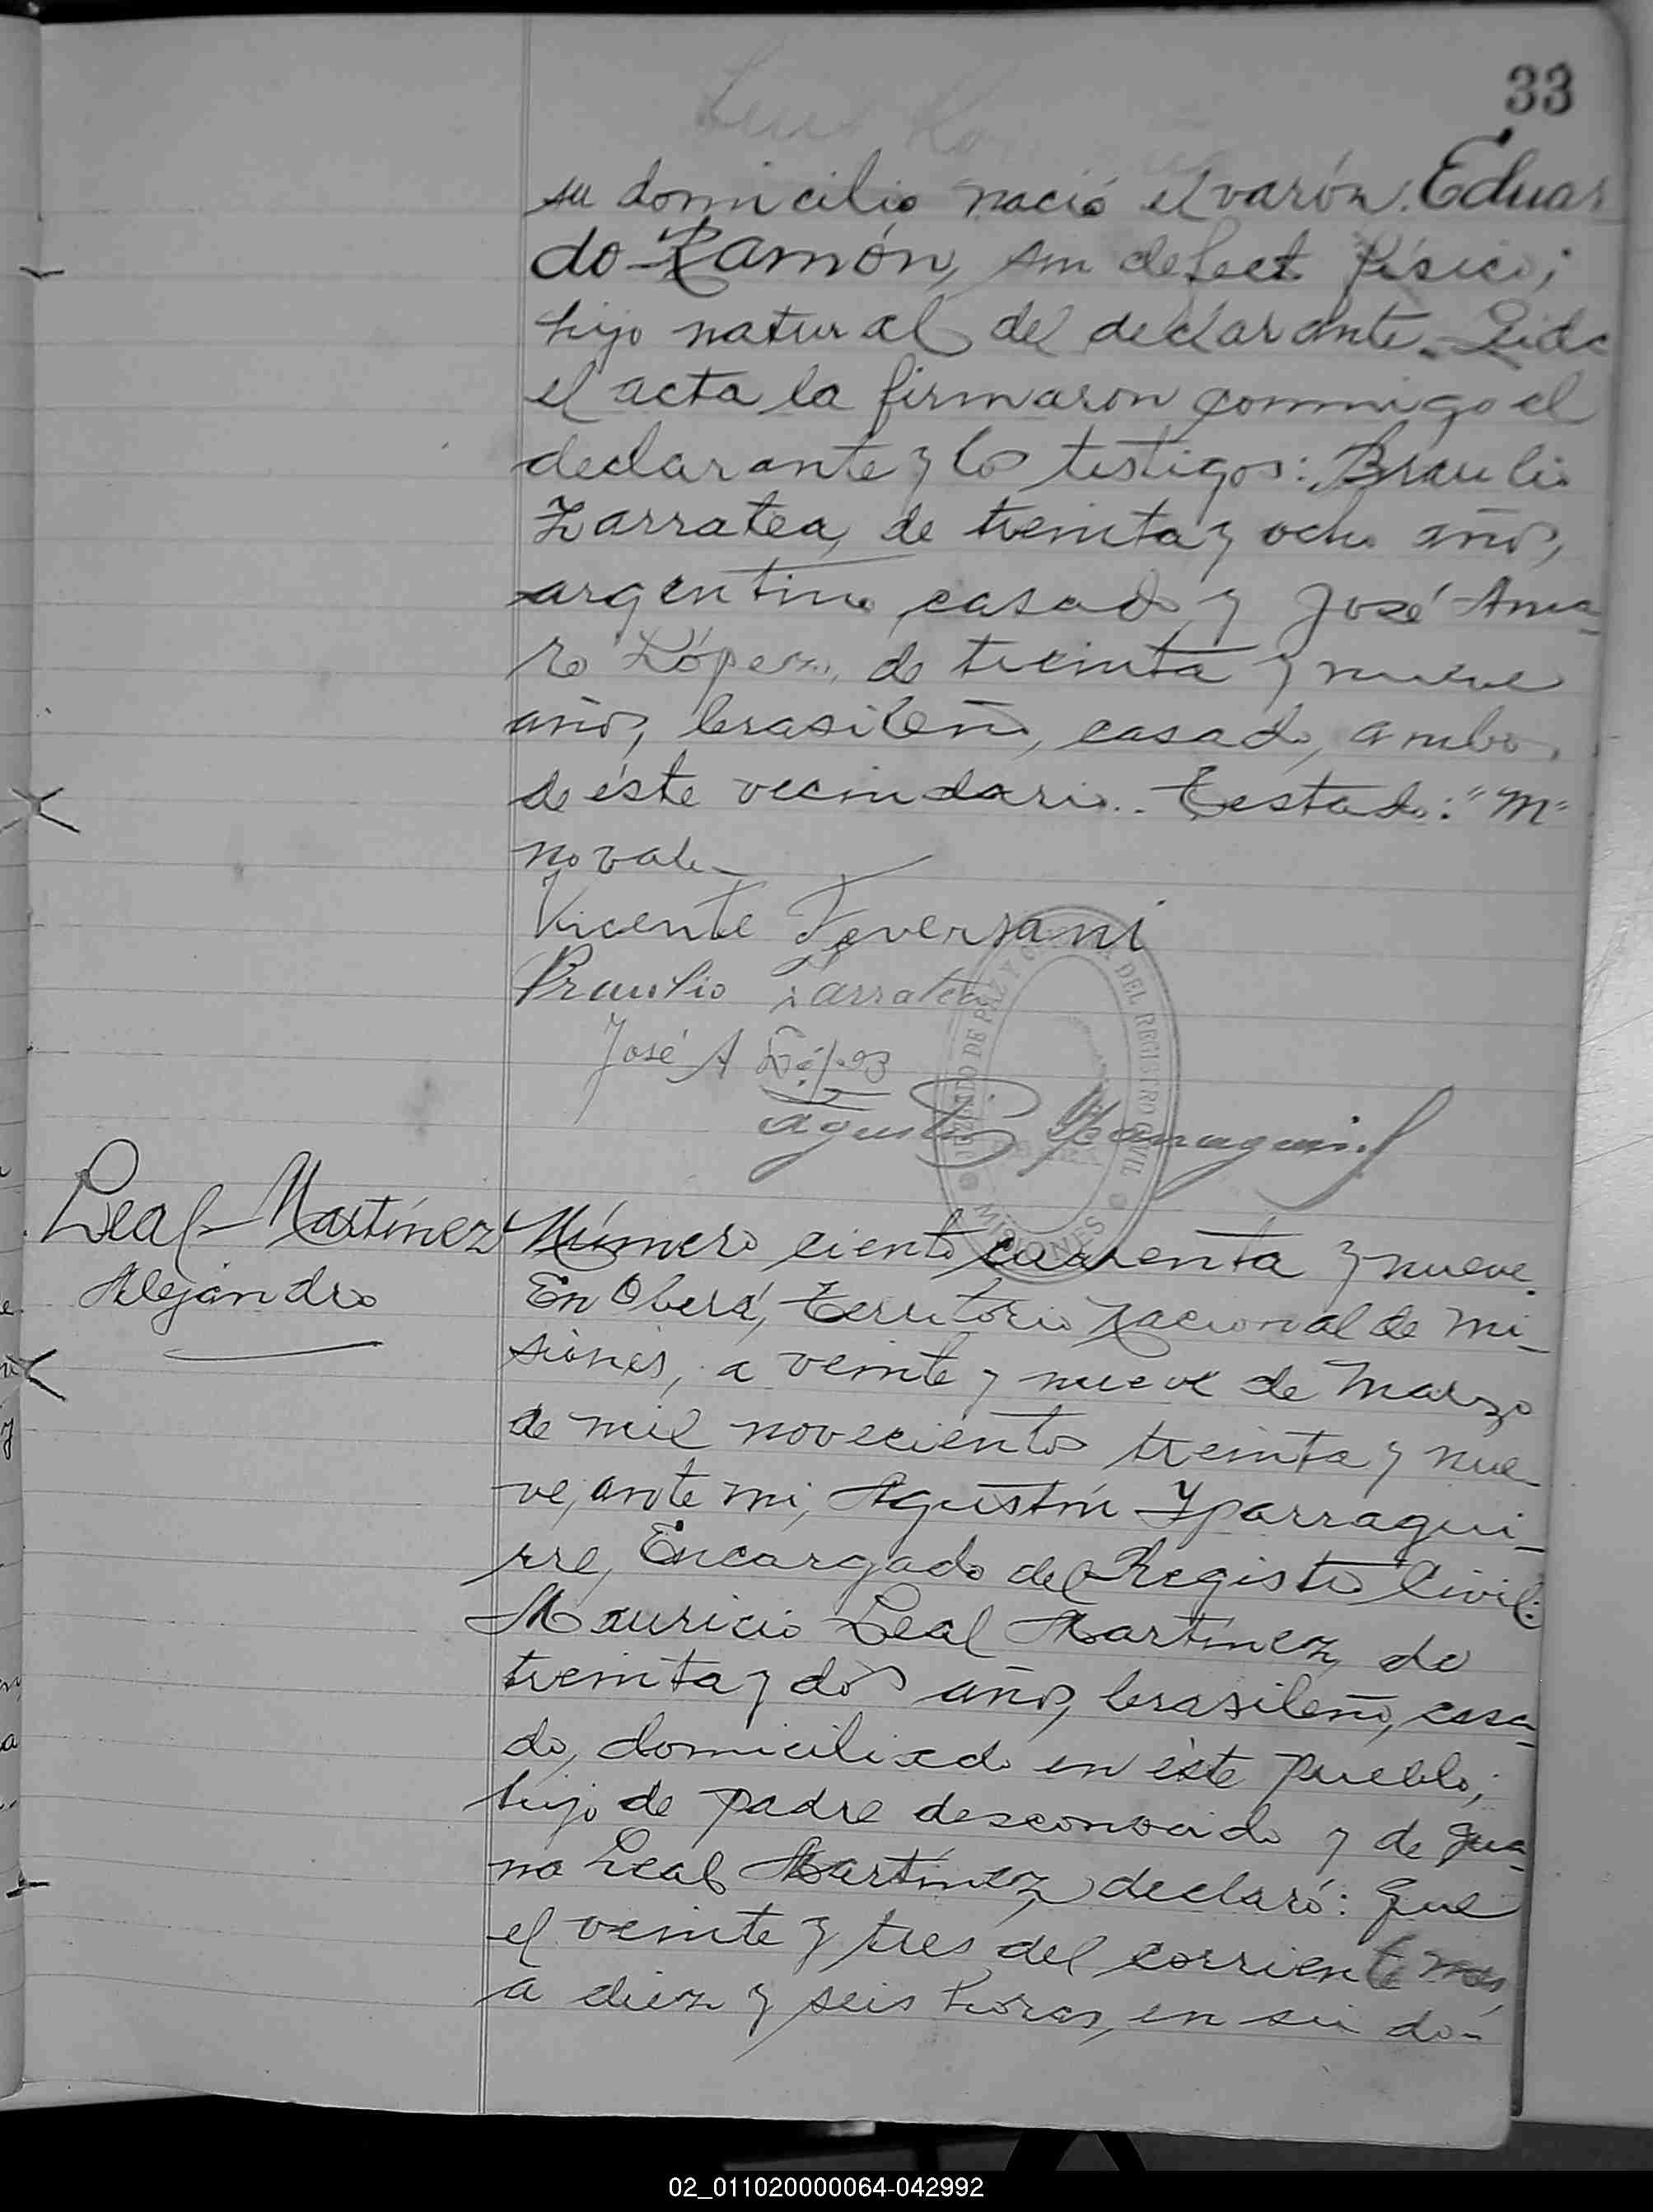 33
su domicilio nació el varón Eduar
do Ramón, sin defect físico;
hijo natural del declarante. Leida
el acta la firmaron conmigo el
declarante y los testigos: Braulio
Zarratea, de treinta y ocho años,
argentino casado y José Ama-
ro López, de treinta y nueve
años, brasileño, casado, ambos
de éste vecindario.. Testado: "M"
no vale-
Vicente
Braulio Zarratea
José A López
Agustin
JUZGADO DE PAZ Y DEL REGISTRO CIVIL
MISIONES
Leal Martínez
Alejandro
Número ciento cuarenta y nueve.
En Oberá, Territorio Nacional de Mi-
siones, a veinte y nueve de Marzo
de mil novecientos treinta y nue-
ve, ante mi, Agustín Yparragui-
rre, Encargado del Registro Civil:
Mauricio Leal Martínez, de
treinta y dos años, brasileño, casa-
do, domiciliado en éste pueblo;
hijo de padre desconocido y de Jua-
na Leal Martínez declaró: Que
el veinte y tres del corriente mes,
a diez y seis horas, en su do-
02_011020000064-042992